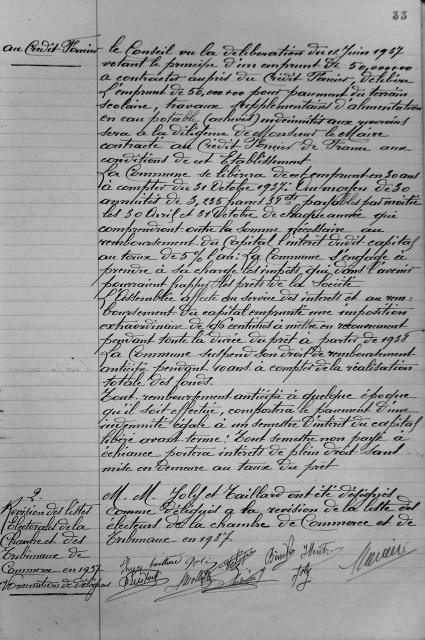 33
au Crédit Foncier
le Conseil vu la délibération du 12 Juin 1937
votant le principe d'un emprunt de 50,000 00
a contracter auprès du Crédit Foncier, délibère
L'emprunt de 50,000 00 pour paiement du terrain
scolaire, travaux supplémentaires d'alimentation
en eau potable (achevés) indemnités aux
sera à la diligence de Monsieur le Maire
contracté au Crédit Foncier de France aux
conditions de cet Etablissement
La Commune se libèrera de cet emprunt en 30 ans
à compter du 31 Octobre 1937: Au moyen de 30
annuités de 3,235 francs payables par moitié
les 30 Avril et 31 Octobre de chaque année qui
comprendront outre la somme nécessaire au
remboursement du Capital l'intérêt dudit capital
au taux de 5 % l'an. La Commune s'engage à
prendre à sa charge les impôts qui dans l'avenir
pourraient frapper les prêts de la Société
L'Assemblée affecte au service des intérêts et au rem-
boursement du capital emprunté une imposition
extraordinaire de centimes à mettre en recouvrement
pendant toute la durée du prêt à partir de 1938
La Commune suspend son droit de remboursement
anticipé pendant 10 ans à compter de la réalisation
totale des fonds.
Tout remboursement anticipé à quelque époque
qu'il soit effectué, comportera le paiement d'une
indemnité égale à un semestre d'intérêt du capital
libéré avant terme: Tout semestre non payé à
échéance portera intérêts de plein droit sans
mise en demeure au taux du prêt
Révision des listes
Electorales de la
Chambre et des
Tribunaux de
Commerce en 1937
Nomination de délégués
M. M. Joly et Taillard ont été désignés
comme délégués à la révision de la liste des
électeurs de la chambre de Commerce et de
Tribunaux en 1937.
Joly